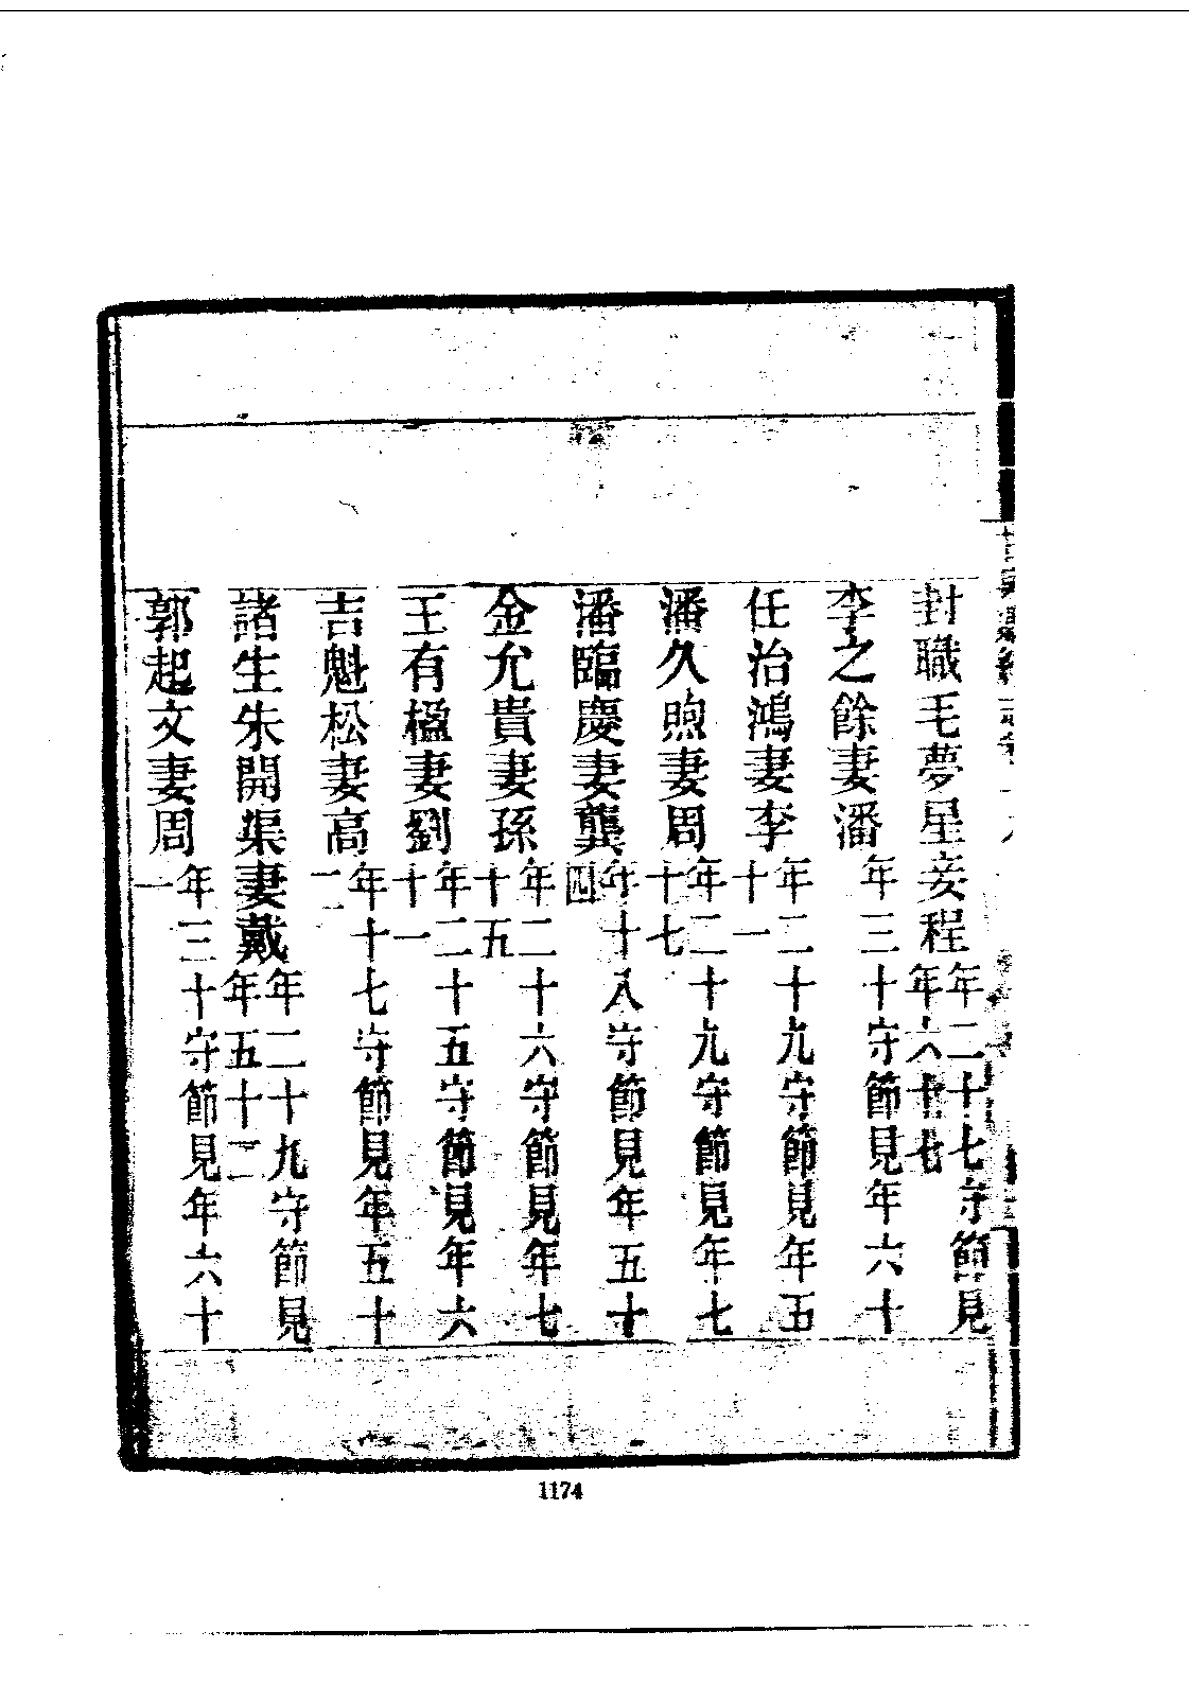 封職毛夢星妾程年二十七守節見年六十七
李之餘妻潘年三十守節見年六十
任治鴻妻李年二十九守節見年五十一
潘久煦妻周年二十九守節見年七十七
潘臨慶妻龔年十八守節見年五十四
金允貴妻孫年二十六守節見年七十五
王有楹妻劉年二十五守節見年六十一
吉魁松妻高年十七守節見年五十二
諸生朱開渠妻戴年二十九守節見年五十二
郭起文妻周年三十守節見年六十一
1174